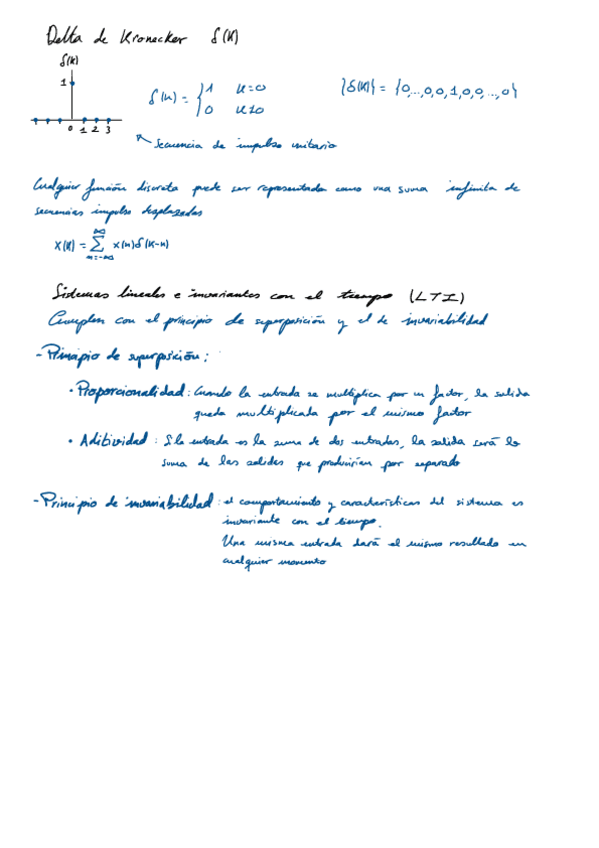 Delta de Kronecker δ(K)
δ(K)
1
0 1 2 3
δ(K) = { 1 K=0
0 K≠0
{δ(K)} = {0,...,0,0,1,0,0,...,0}
Secuencia de impulso unitario
Cualquier función discreta puede ser representada como una suma infinita de
secuencias impulso desplazadas
X(K) = ∑ x(n)δ(K-n)
∞
n=-∞
Sistemas lineales e invariantes con el tiempo (LTI)
Cumplen con el principio de superposición y el de invariabilidad
- Principio de superposición:
• Proporcionalidad: Cuando la entrada se multiplica por un factor, la salida
queda multiplicada por el mismo factor
• Aditividad: Si la entrada es la suma de dos entradas, la salida será la
suma de las salidas que producirían por separado
- Principio de invariabilidad: el comportamiento y características del sistema es
invariante con el tiempo.
Una misma entrada dará el mismo resultado en
cualquier momento